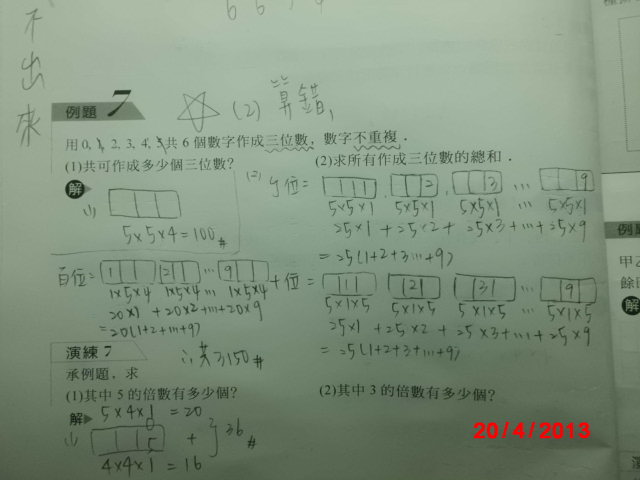 不出來
例題 7
(2) 算錯,
用 0, 1, 2, 3, 4, 5 共 6 個數字作成三位數，數字不重複．
(1)共可作成多少個三位數？
(2)求所有作成三位數的總和．
解
(1)
5×5×4=100#
(2)
位= 1 2 3 … 9
5×5×1 5×5×1 5×5×1 5×5×1
25×1 + 25×2 + 25×3 + … + 25×9
=25(1+2+3…+9)
百位= 1 2 … 9
1×5×4 1×5×4 … 1×5×4
20×1 + 20×2 + … + 20×9
=20(1+2+…+9)
十位= 1 2 3 … 9
5×1×5 5×1×5 5×1×5 5×1×5
25×1 + 25×2 + 25×3 + … + 25×9
=25(1+2+3+…+9)
∴共3150#
演練 7
承例題，求
(1)其中 5 的倍數有多少個？
(2)其中 3 的倍數有多少個？
解
5×4×1=20
(1)
0
5
+ } 36#
4×4×1=16
20/4/2013
甲
餘
解